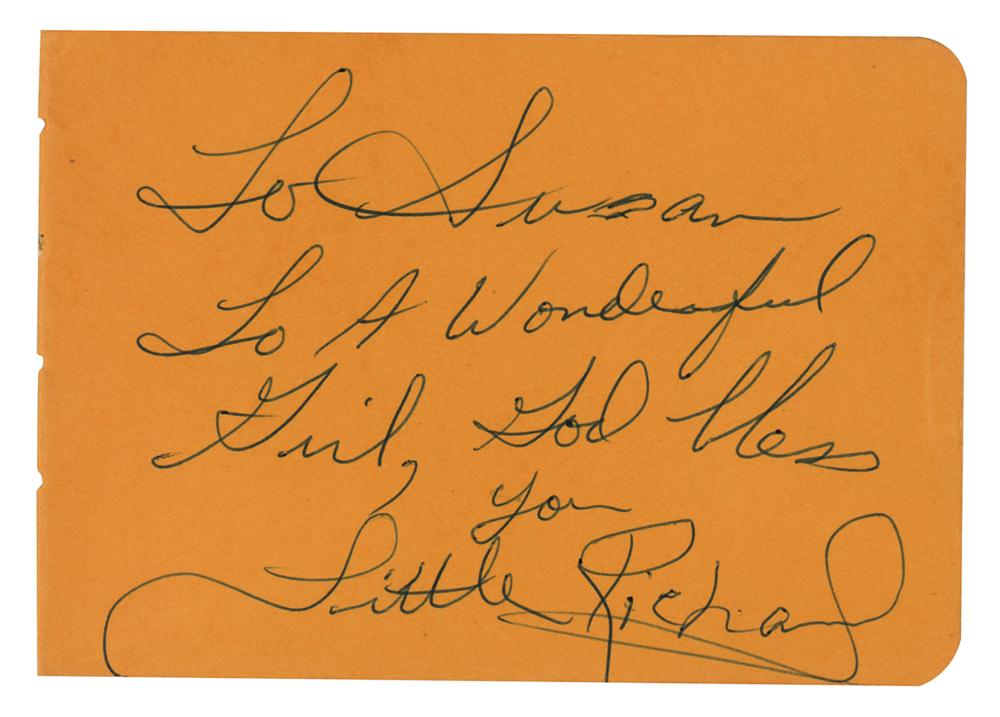 To Susan
To A Wonderful
Girl, God bless
you
Little Richard